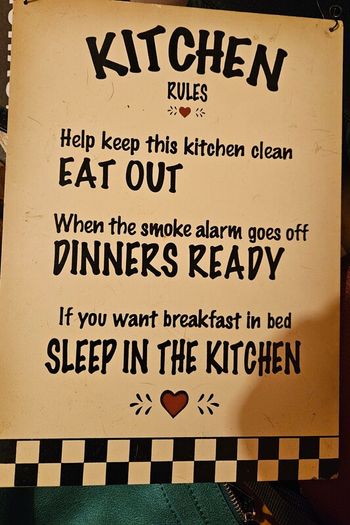 KITCHEN
RULES
Help keep this kitchen clean
EAT OUT
When the smoke alarm goes off
DINNERS READY
If you want breakfast in bed
SLEEP IN THE KITCHEN